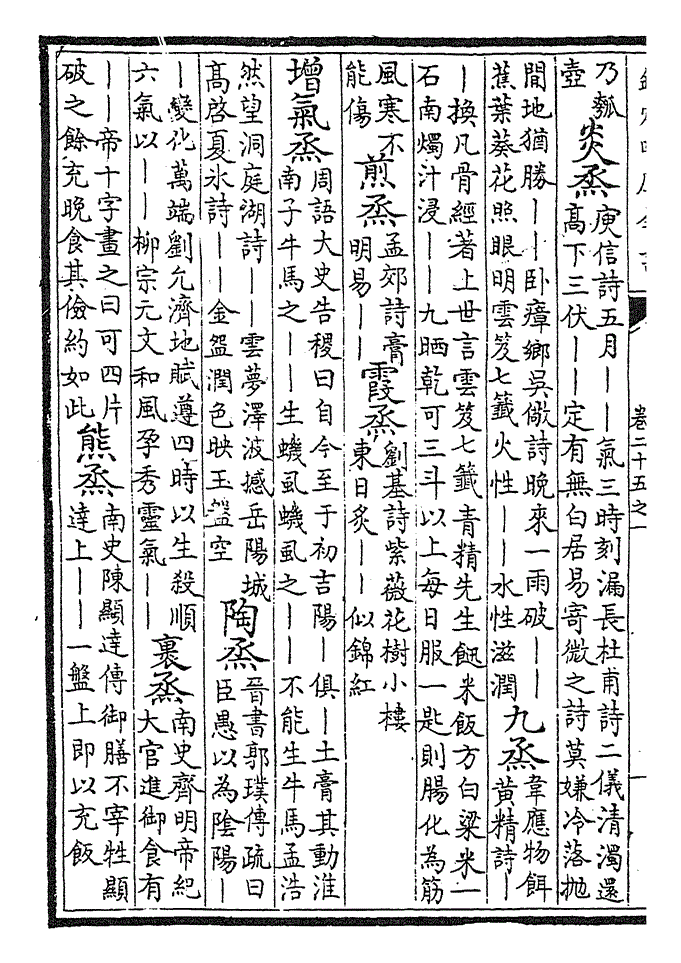 卷二十五之一
乃瓠
壺
炎烝
庾信詩五月——氣三時刻漏長杜甫詩二儀清濁還
高下三伏——定有無白居易寄微之詩莫嫌冷落拋
閒地猶勝——臥瘴鄉吳儆詩晚來一雨破——
蕉葉葵花照眼明雲笈七籤火性——水性滋潤
九烝
韋應物餌
黃精詩—
—換凡骨經著上世言雲笈七籤青精先生䭀米飯方白粱米一
石南燭汁浸——九晒乾可三斗以上每日服一匙則腸化為筋
風寒不
能傷
煎烝
孟郊詩膏
明易——
霞烝
劉基詩紫薇花樹小樓
東日炙——似錦紅
增氣烝
周語大史告稷曰自今至于初吉陽—俱—土膏其動淮
南子牛馬之——生蟣虱蟣虱之——不能生牛馬孟浩
然望洞庭湖詩——雲夢澤波撼岳陽城
高啓夏氷詩——金盌潤色映玉盤空
陶烝
晉書郭璞傳疏曰
臣愚以為陰陽—
—變化萬端劉允濟地賦遵四時以生殺順
六氣以——柳宗元文和風孕秀靈氣——
裹烝
南史齊明帝紀
大官進御食有
——帝十字畫之曰可四片
破之餘充晚食其儉約如此
熊烝
南史陳顯達傳御膳不宰牲顯
達上——一盤上即以充飯